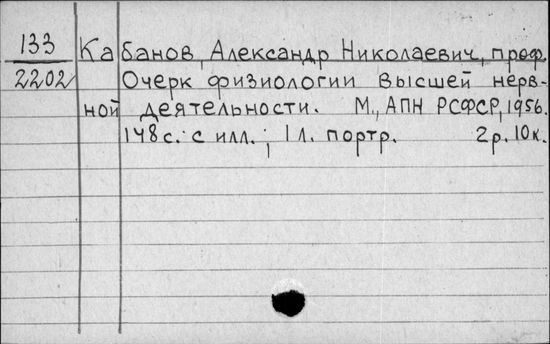 133
2202
Кабанов, Александр Николаевич, проф.
Очерк физиологии высшей нерв-
ной деятельности. М., АПН РСФСР, 1956.
148 с. с илл.; 1 л. портр. 2 р. 10 к.